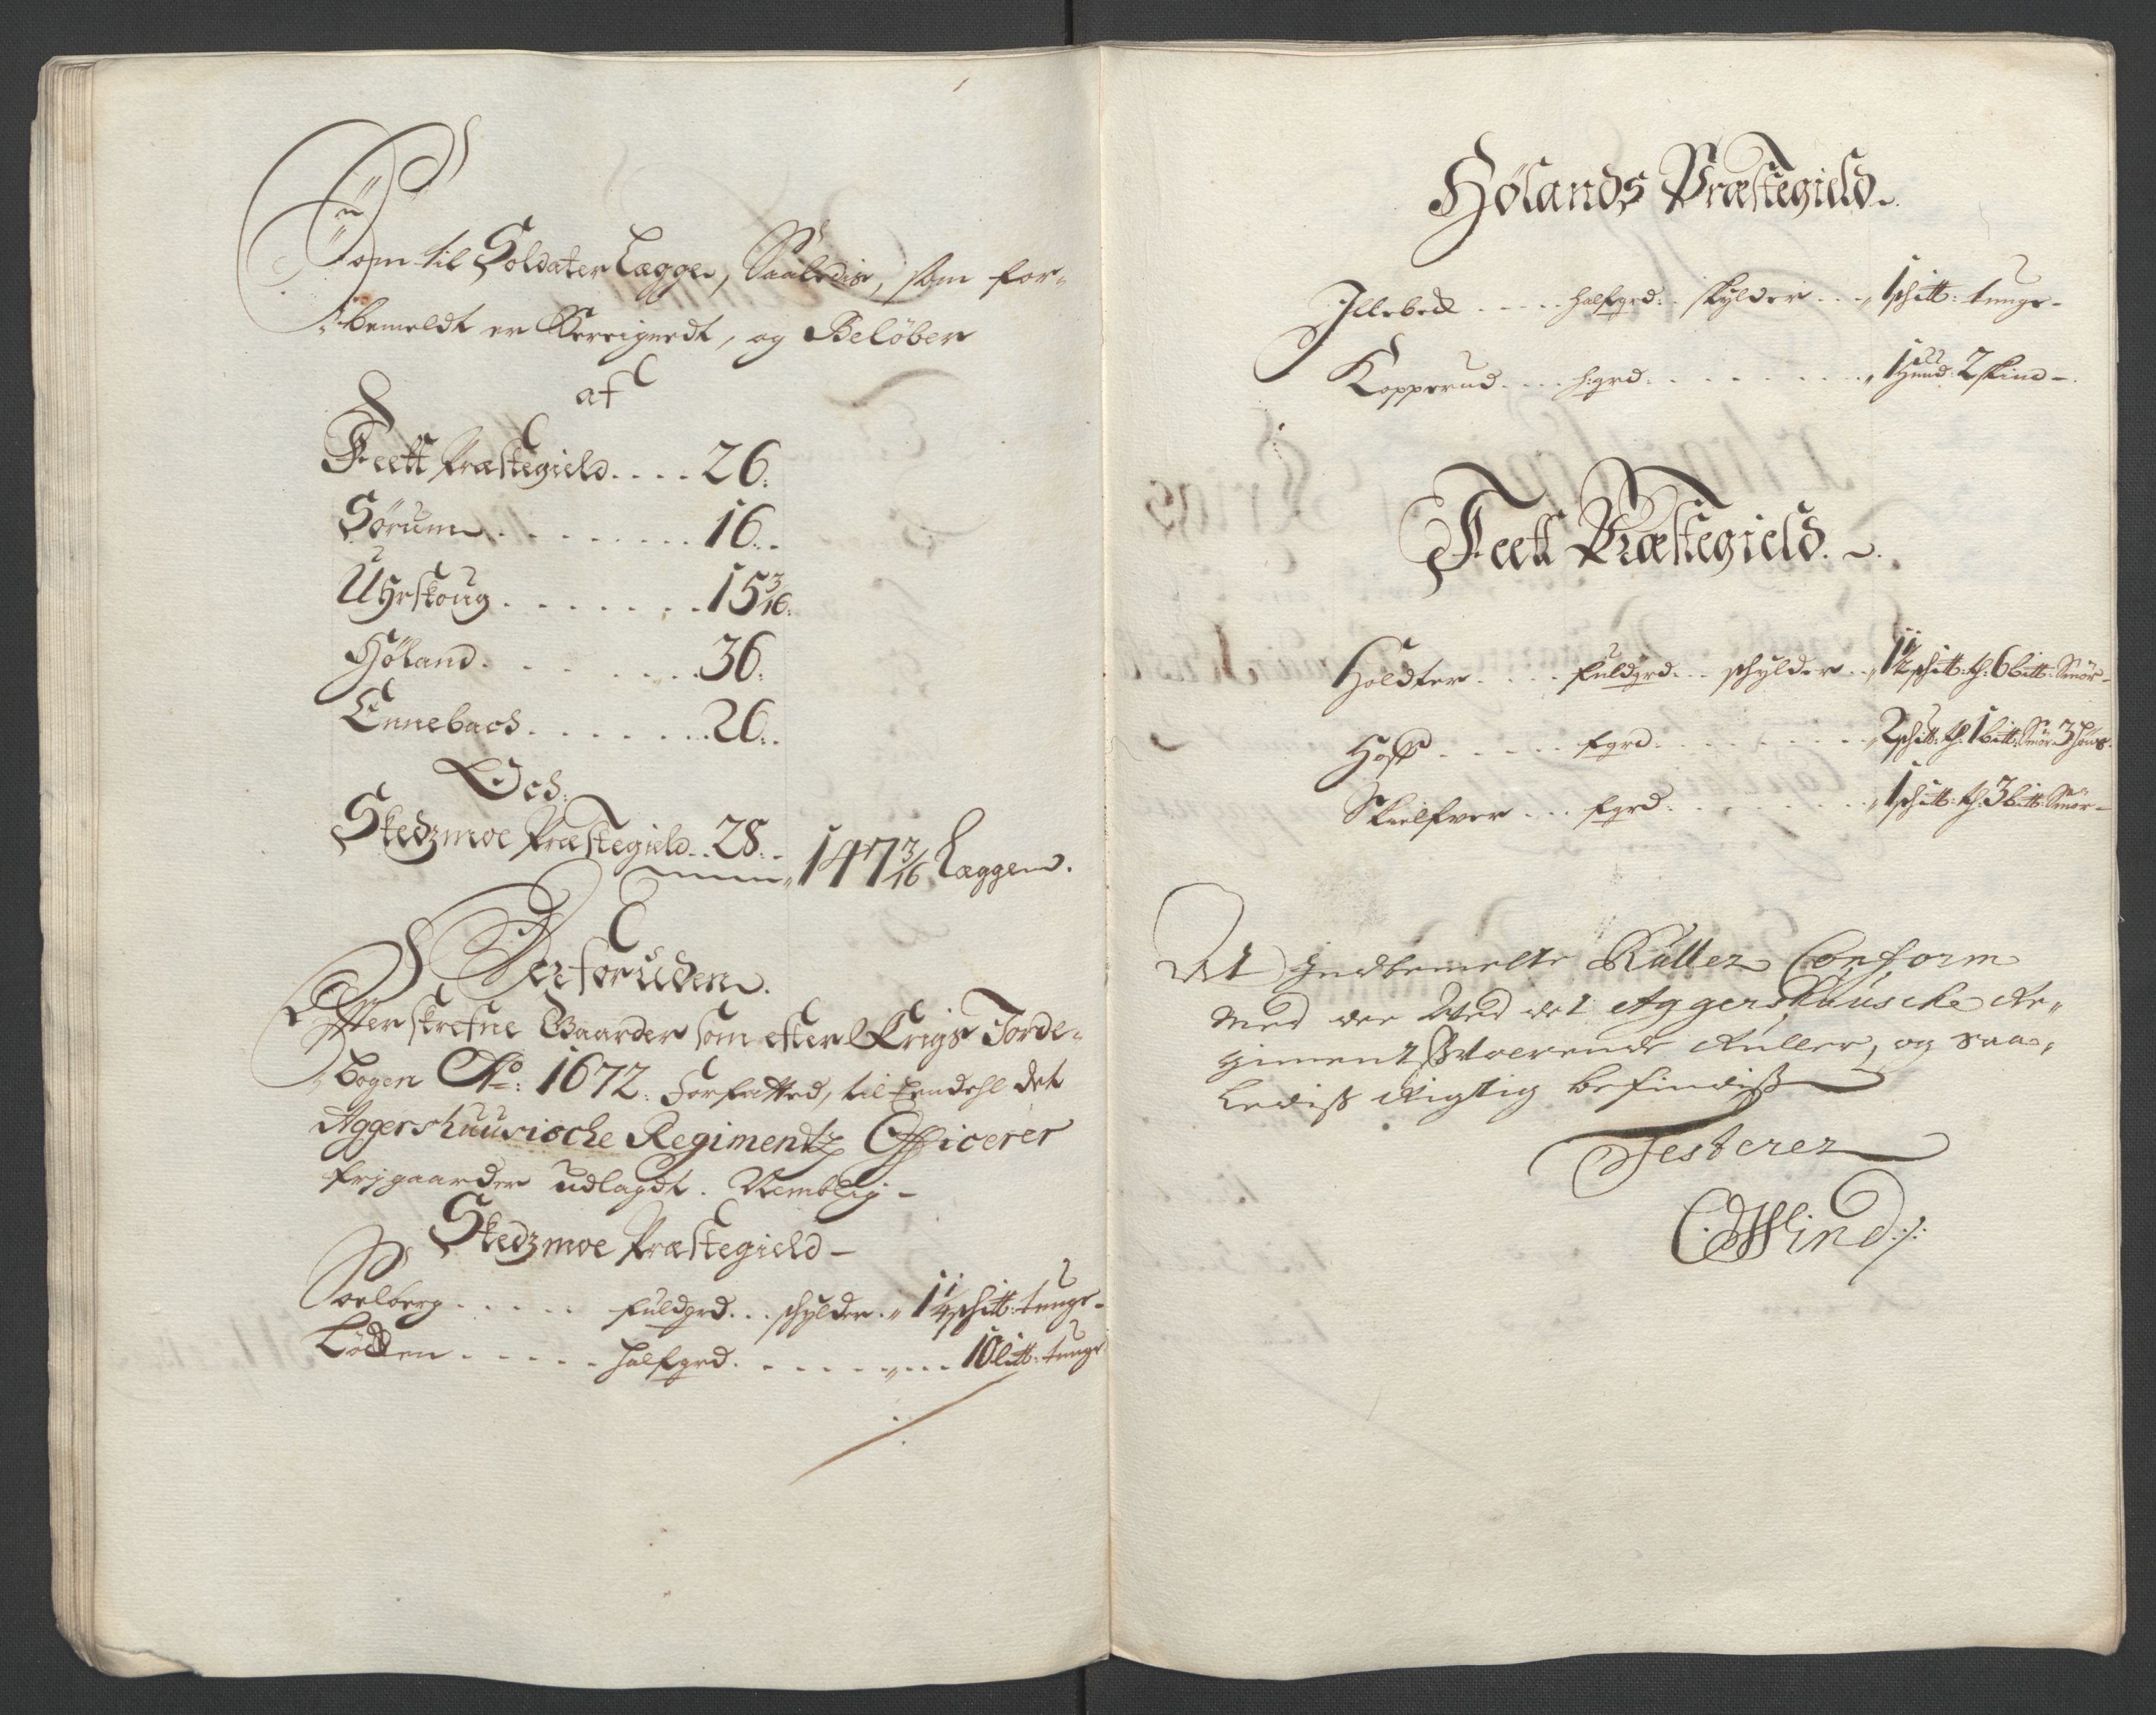 Som til Soldater Lægger, Saaledis, som for-
bemeldt er Bereignedt, og Beløber
af
Feett Præstegield.... 26.
Sørum ......... 16.
Uhrskoug ....... 15 3/16.
Høland ....... 36.
Ennebach ....... 26.
Och
Skedzmoe Præstegield.. 28.. 147 3/16 Læggend.
Derforuden
Efterskrefne Gaarder som efter Krigs Jorde-
bogen Ao: 1672. Forfatted, til Eendehl det
Aggershuusische Regimentz Officerer
frjgaarder udlagdt. Nemblig -
Skedzmoe Præstegield -
Soelberg ..... fuldgrd... schylder. 1 1/4 schitt: tunge -
Lødten ..... halfgrd. ........ 10 litt: tunge
Hølands Præstegield.
Illebech .... halfgrd: skylder... 1 schitt: tunge -
Kopperud.... hgrd. ........ 1 hud: 2 skind -
Feett Præstegield.
Holdter .... fuldgrd... schylder.. 1 1/2 schitt: th: 6 bitt: Smør -
Hoff ..... fgrd. ........ 2 schitt: th: 1 bitt: Smør 3
Skielfver ... fgrd. ........ 1 schitt: th: 3 bitt: Smør -
At Indbemelte Ruller Conform
med dee Wed det Aggershuusche Re-
giment Værende Ruller, og saa-
Lediss Rigtig befindiss
Testerer
CHWind